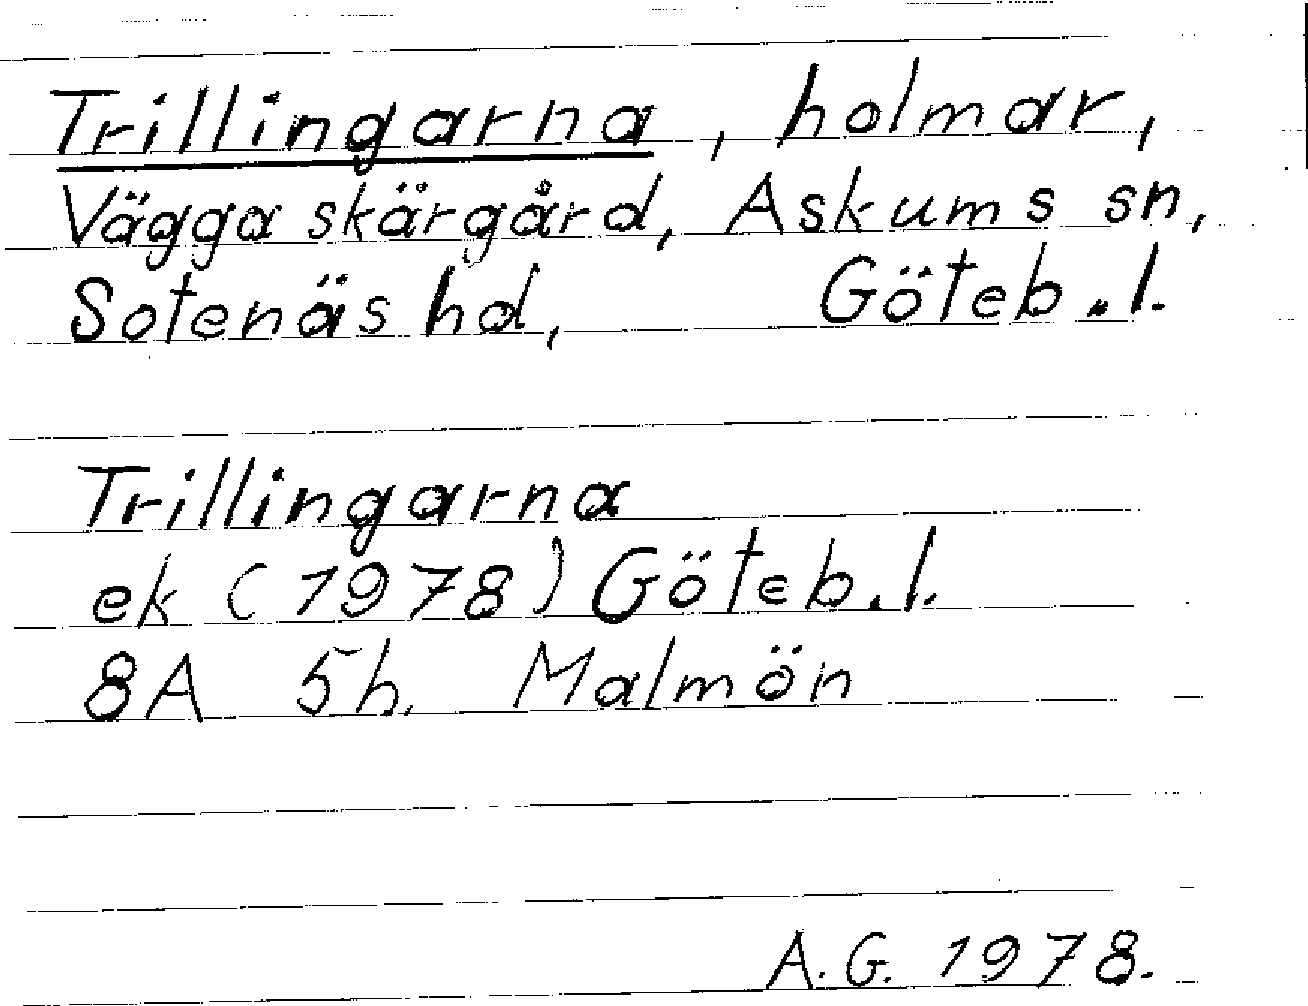 Trillingarna, holmar,
Vägga skärgård, Askums sn,
Sotenäs hd, Göteb.l.
Trillingarna
ek (1978) Göteb.l.
8A 5h. Malmön
A.G. 1978.